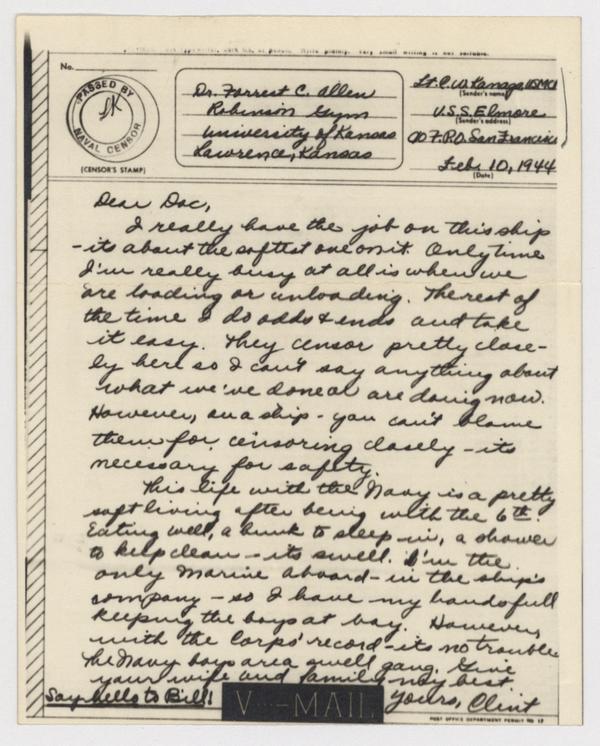 No.
PASSED BY
NAVAL CENSOR
(CENSOR'S STAMP)
Dr. Forrest C. Allen
Robinson Gym
University of Kansas
Lawrence, Kansas
Lt. C. W. Kanaga, USMCR
(Sender's name)
U.S.S. Elmore
(Sender's address)
F.P.O. San Francisco
Feb. 10, 1944
(Date)
Dear Doc,
I really have the job on this ship
- its about the softest one on it. Only time
I'm really busy at all is when we
are loading or unloading. The rest of
the time I do odds & ends and take
it easy. They censor pretty close-
ly here so I can't say anything about
what we've done or are doing now.
However, on a ship - you can't blame
them for censoring closely - its
necessary for safety.
This life with the Navy is a pretty
soft living after being with the 6th.
Eating well, a bunk to sleep in, a shower
to keep clean - its swell. I'm the
only Marine aboard - in the ship's
company - so I have my hands full
keeping the boys at bay. However,
with the Corps' record - its no trouble
The Navy boys are a swell gang. Give
your wife and family my best.
Say hello to Bill!
Yours, Clint
V···-MAIL
POST OFFICE DEPARTMENT PERMIT NO. 12